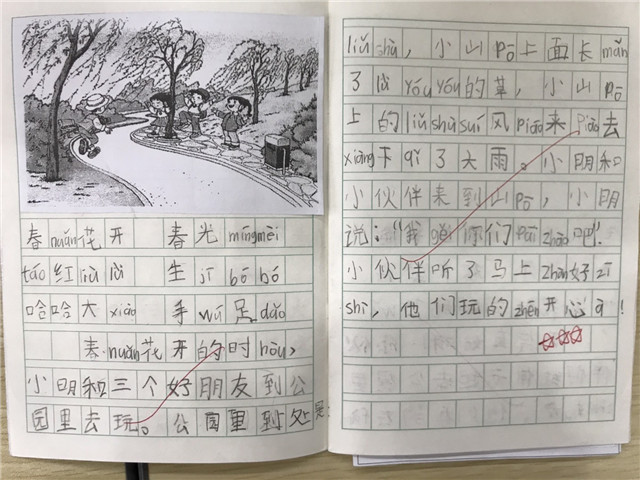 春nuǎn花开 春光míngmèi
táo红liǔ lǜ 生jī bó bó
哈哈大xiào 手wǔ足dǎo
春nuǎn花开的时hòu,
小明和三个好朋友到公
园里去玩。公园里到处是
liǔ shù,小山pō上面长mǎn
了lǜ yóu yóu的草,小山pō
上的liǔ shù suí风piāo来piāo去
xiàng下qǐ了大雨。小明和
小伙伴来到山pō,小明
说:“我gěi你们pāi zhào吧”.
小伙伴听了马上zhǎn好zī
shì,他们玩的zhēn开心a!